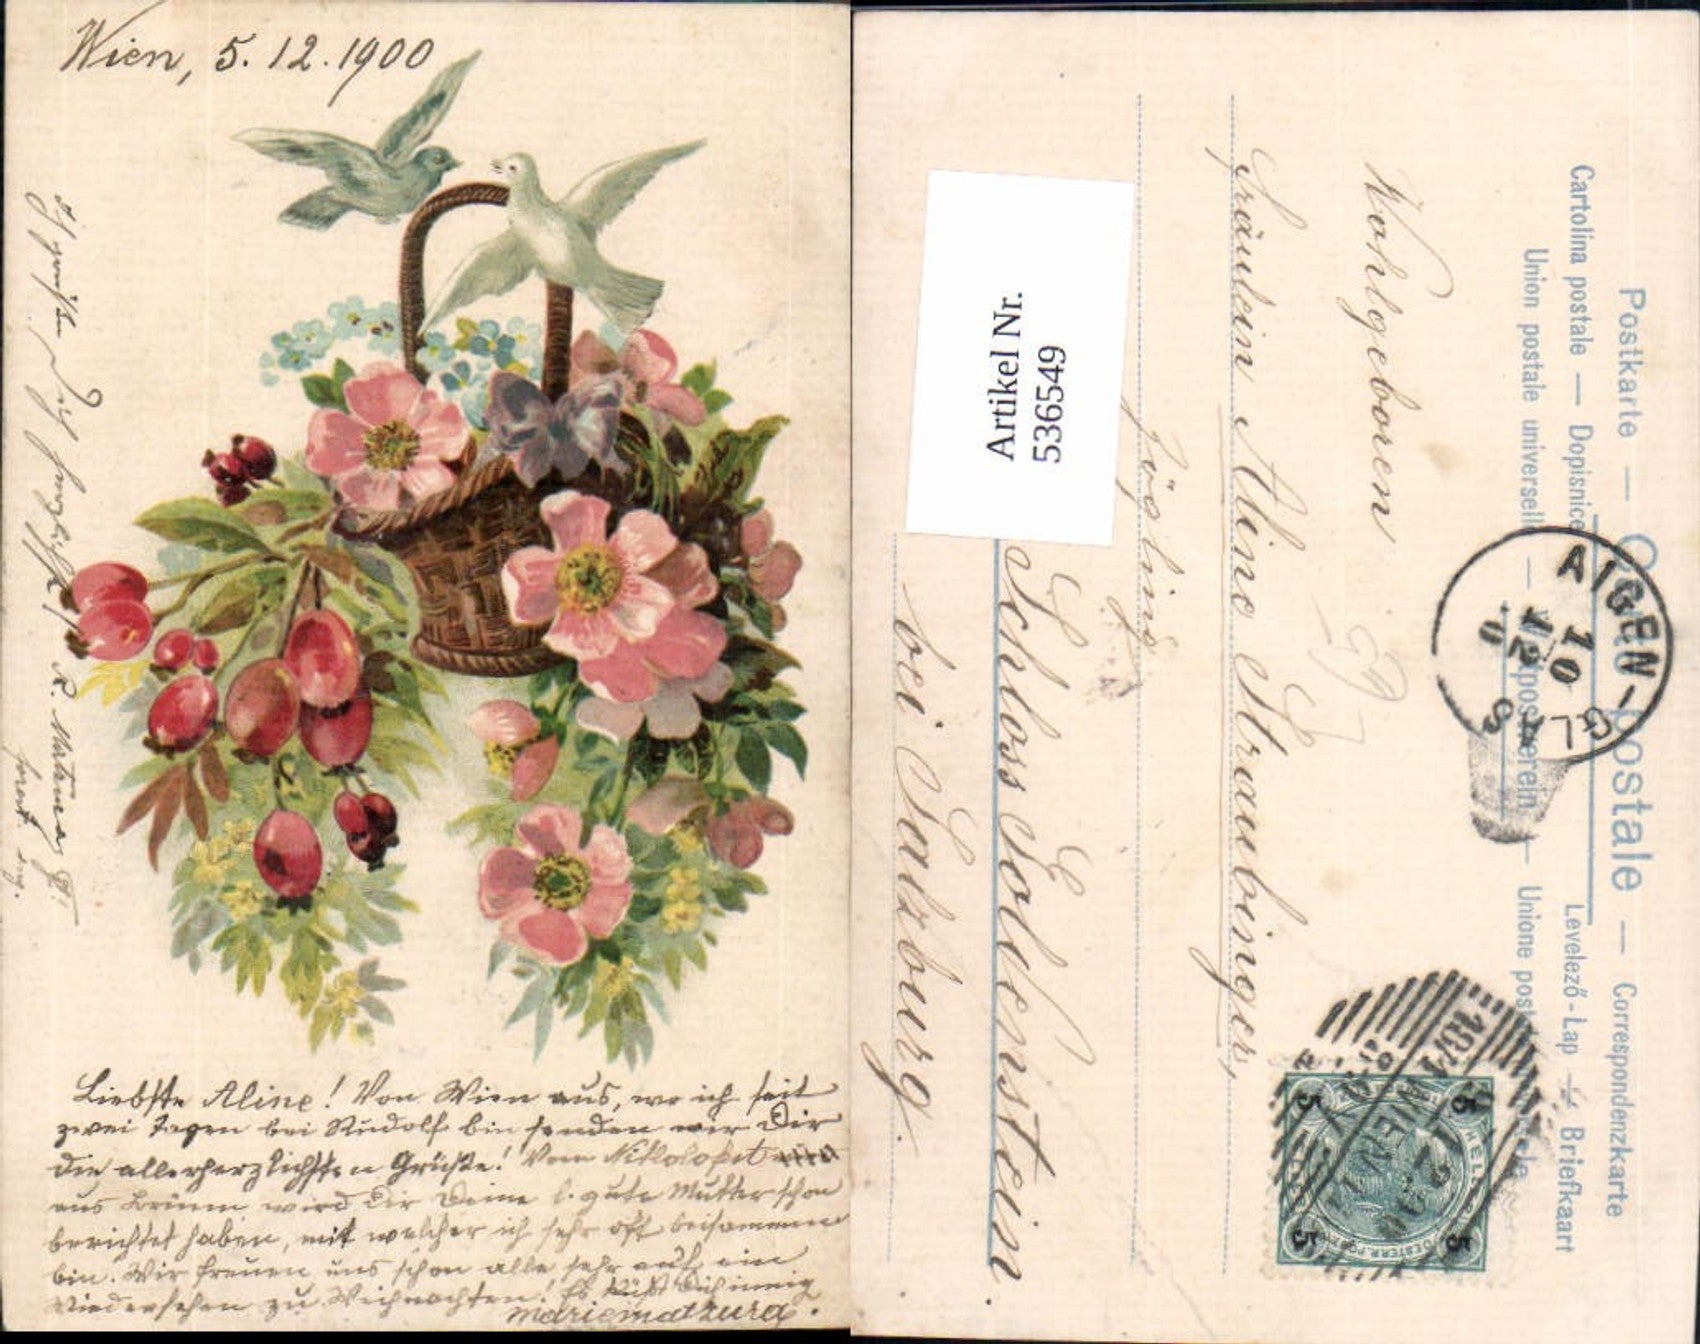 Wien, 5. 12. 1900
Liebste Aline! Von Wien aus, wo ich seit
zwei Tagen bei Rudolf bin senden wir Dir
die allerherzlichsten Grüße! Vom
aus Brünn wird Dir Deine l. gute Mutter schon
berichtet haben, mit welcher ich sehr oft beisammen
bin. Wir freuen uns schon alle sehr auf ein
Wiedersehen zu Weihnachten! Es küßt Dich innig
Artikel Nr.
536549
Postkarte — Carte postale — Correspondenzkarte
Cartolina postale — Dopisnice Levelező-Lap — Briefkaart
Union postale universelle — Weltpostverein — Unione postale
AIGEN-GLAS
10
12
0
WIEN
5 5
5 5
Wohlgeboren
Fräulein Aline Straubinger,
Zögling
Schloss Goldenstein
bei Salzburg.